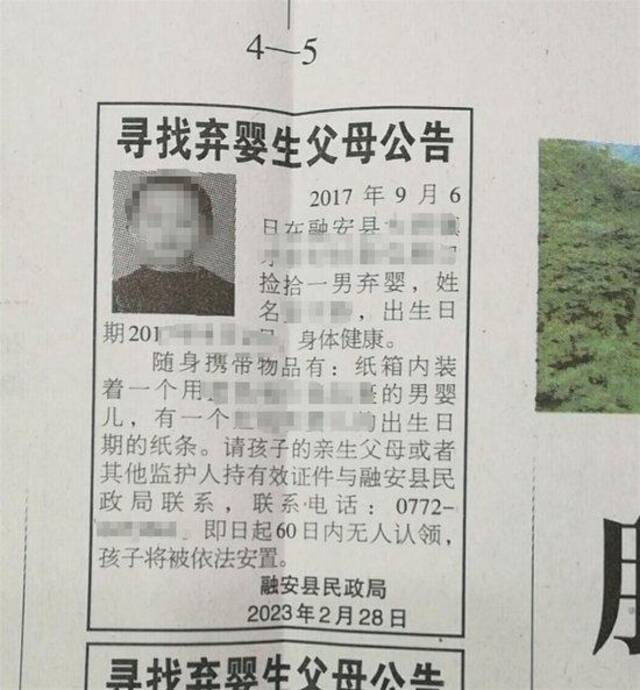 4—5
寻找弃婴生父母公告
2017年9月6
日在融安县
捡拾一男弃婴，姓
名，出生日
期201 身体健康。
随身携带物品有：纸箱内装
着一个用的男婴
儿，有一个的出生日
期的纸条。请孩子的亲生父母或者
其他监护人持有效证件与融安县民
政局联系，联系电话：0772-
。即日起60日内无人认领，
孩子将被依法安置。
融安县民政局
2023年2月28日
寻找弃婴生父母公告